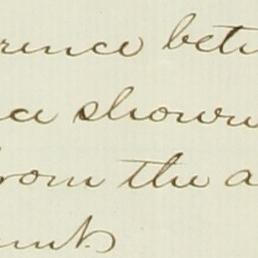 rence betw
ce shown
from the a
unt.